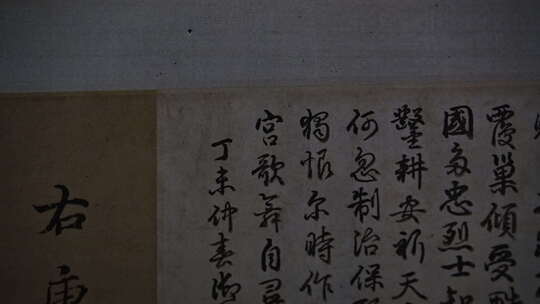 覆巢傾受
國多忠烈士
鑿耕安祈天
何忽制治保
獨恨尔時作
宮歌舞自
丁未仲春御
右唐